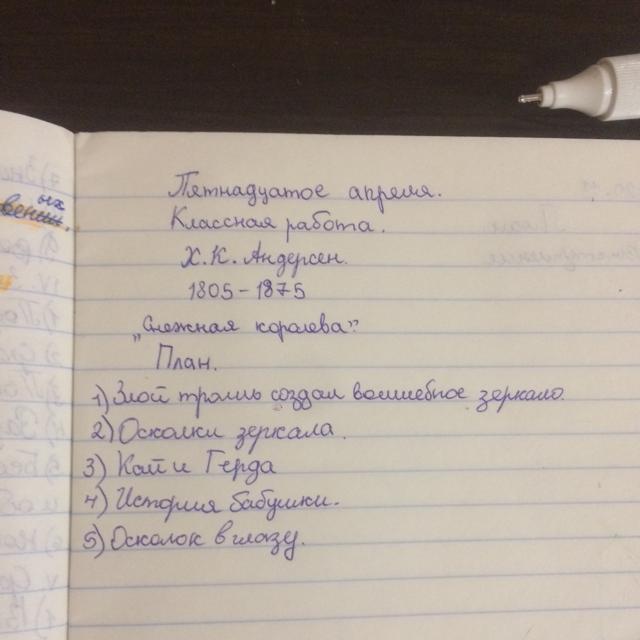 Пятнадцатое апреля.
Классная работа.
Х.К. Андерсен.
1805-1875
„Снежная королева".
План.
1) Злой тролль создал волшебное зеркало.
2) Осколки зеркала.
3) Кай и Герда
4) История бабушки.
5) Осколок в глазу.